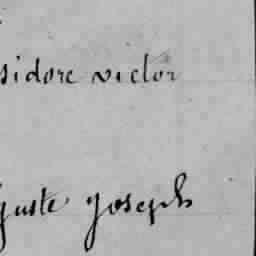 sidore victor
guste joseph